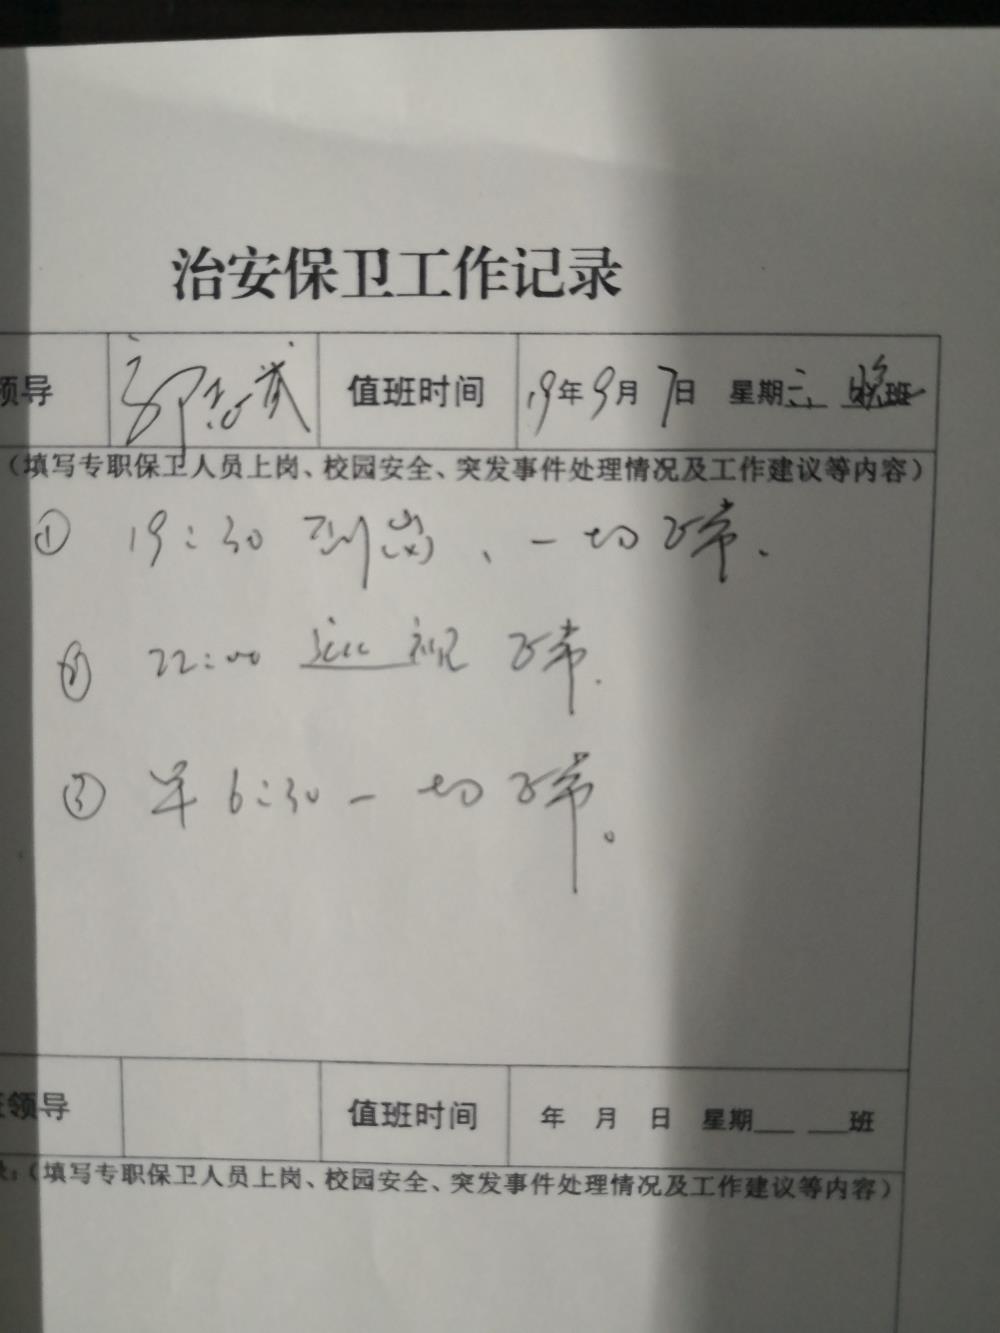 治安保卫工作记录
领导 郭志武 值班时间 19年9月7日 星期六 晚班
（填写专职保卫人员上岗、校园安全、突发事件处理情况及工作建议等内容）
① 19:30 到岗、一切正常.
② 22:00 巡视 正常.
③ 早6:30 一切正常。
班领导 值班时间 年 月 日 星期___ ___班
录:（填写专职保卫人员上岗、校园安全、突发事件处理情况及工作建议等内容）